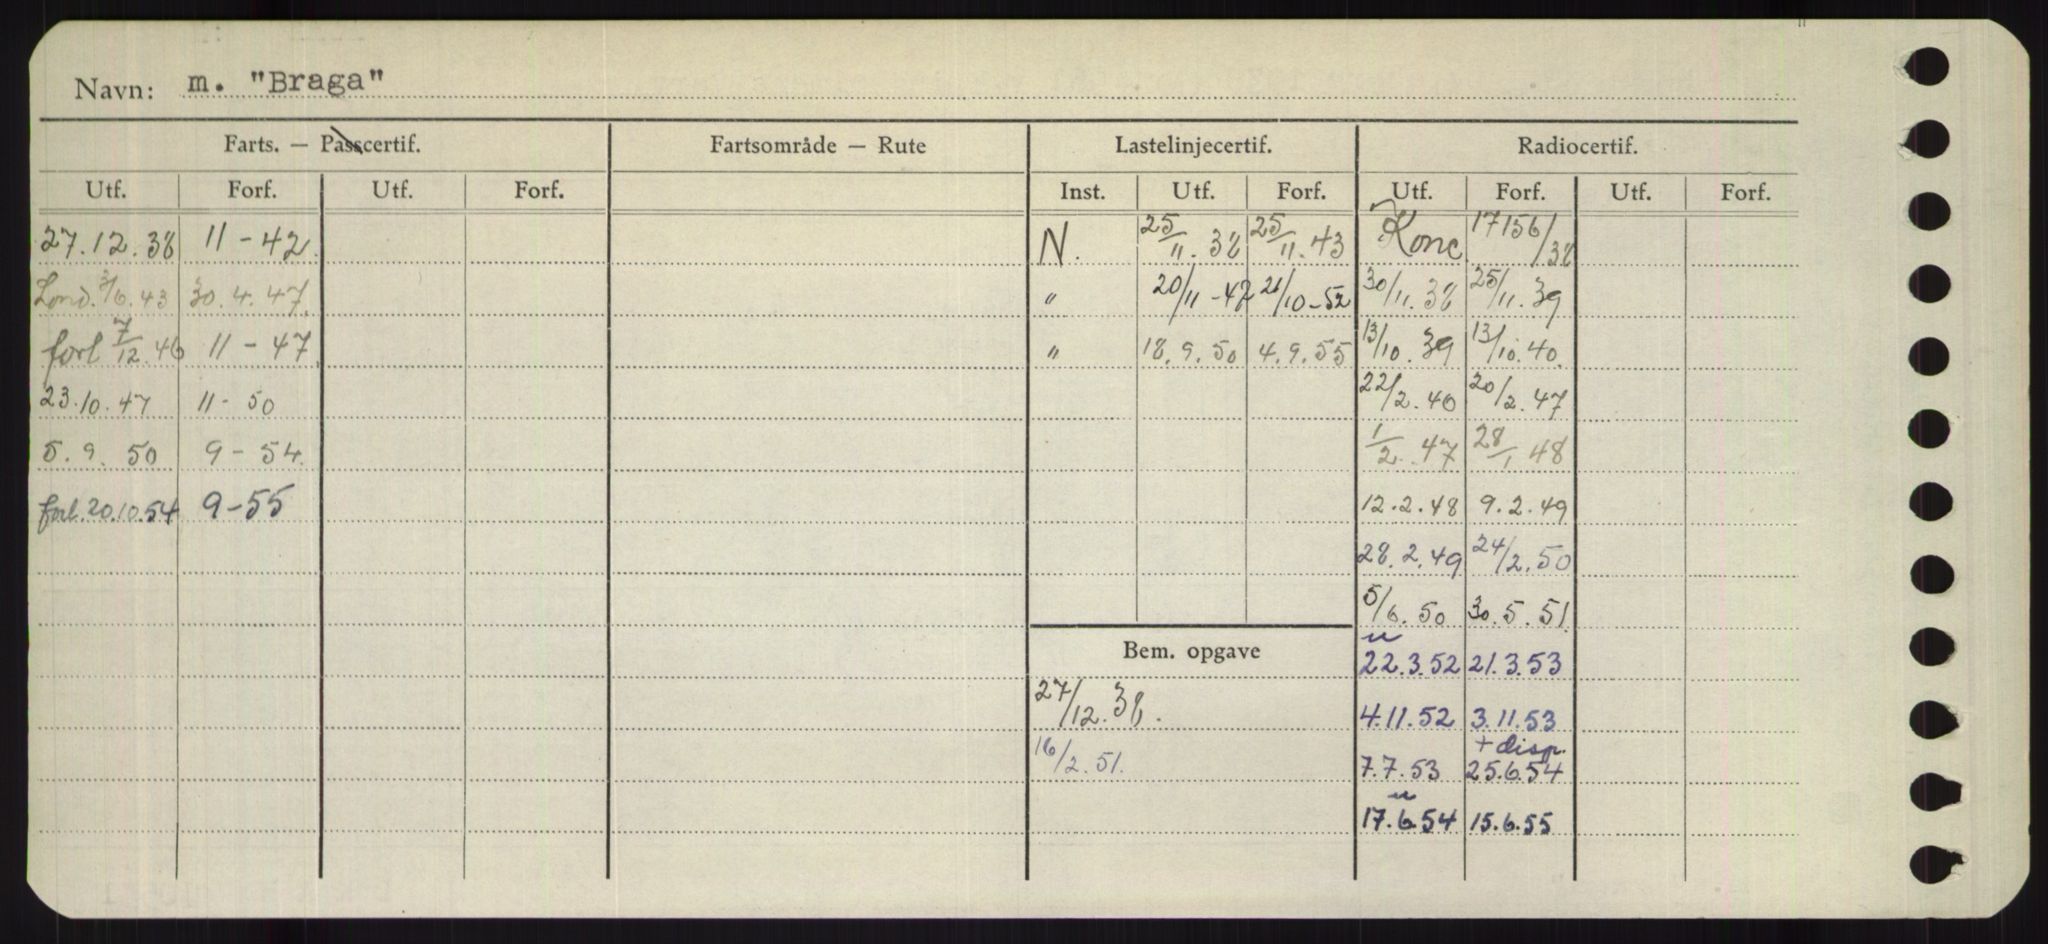 Navn: m. "Braga"
Farts. — Passcertif. Fartsområde — Rute Lastelinjecertif. Radiocertif.
Utf. Forf. Utf. Forf. Inst. Utf. Forf. Utf. Forf. Utf. Forf.
27.12.38 11-42 N. 25/11.38 25/11.43 Konc. 17156/38
Lond. 3/6.43 30.4.47. " 20/11-47 21/10-52 30/11.38 25/11.39
forl 7/12.46 11-47 " 18.9.50 4.9.55 13/10.39 13/10.40.
23.10.47 11-50 22/2.40 20/2.47
5.9.50 9-54. 1/2.47 28/1 48
forl. 20.10.54 9-55 12.2.48 9.2.49
28.2.49 24/2.50
5/6.50 30.5.51.
Bem. opgave u
22.3.52 21.3.53
27/12.38. 4.11.52 3.11.53
+ disp.
16/2.51. 7.7.53 25.6.54
u
17.6.54 15.6.55